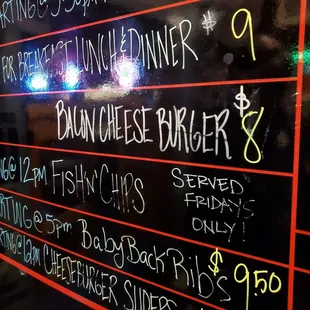 FOR BREAKFAST LUNCH & DINNER $9
BACON CHEESE BURGER $8
@ 12PM FISH N' CHIPS SERVED
FRIDAYS
ONLY!
@ 5pm Baby Back Rib's $9.50
@ 12pm CHEESEBURGER SLIDERS